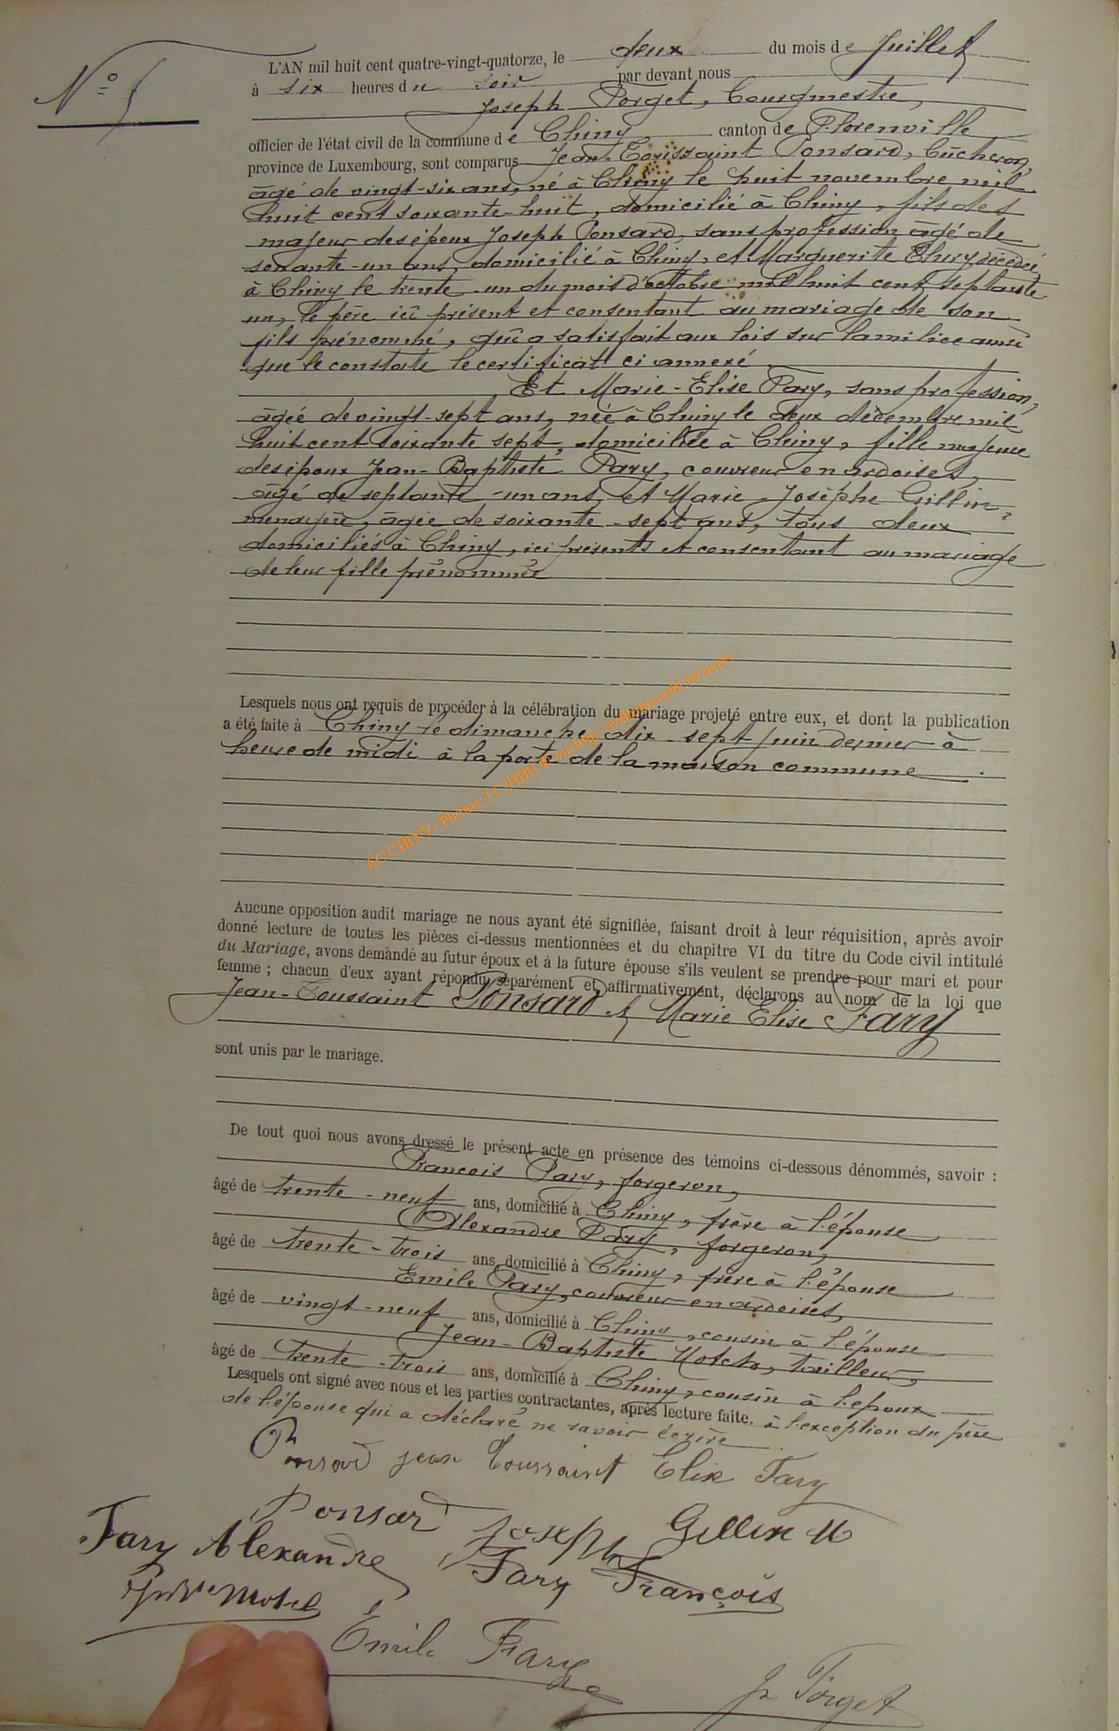 N° 5
L'AN mil huit cent quatre-vingt-quatorze, le deux du mois de Juillet
à six heures du soir par devant nous
Joseph Porget, Bourgmestre,
officier de l'état civil de la commune de Chiny canton de Florenville
province de Luxembourg, sont comparus Jean-Toussaint Ponsard, bûcheron,
âgé de vingt-six ans, né à Chiny le huit novembre mil
huit cent soixante-huit, domicilié à Chiny, fils
majeur des époux Joseph Ponsard, sans profession, âgé de
soixante-un ans, domicilié à Chiny, et Marguerite décédée
à Chiny le trente-un du mois d'octobre mil huit cent septante
un, le père ici présent et consentant au mariage de son
fils prénommé, qui a satisfait aux lois sur la milice ainsi
que le constate le certificat ci annexé
Et Marie-Elise Fary, sans profession,
âgée de vingt-sept ans, née à Chiny le deux décembre mil
huit cent soixante sept, domiciliée à Chiny, fille majeure
des époux Jean-Baptiste Fary, couvreur en ardoises,
âgé de septante-un ans, et Marie-Josèphe Gillin,
ménagère, âgée de soixante-sept ans, tous deux
domiciliés à Chiny, ici présents et consentant au mariage
de leur fille prénommée
Lesquels nous ont requis de procéder à la célébration du mariage projeté entre eux, et dont la publication
a été faite à Chiny le dimanche dix-sept juin dernier à
heure de midi à la porte de la maison commune.
AC CHINY - Photos J C HBH
Aucune opposition audit mariage ne nous ayant été signifiée, faisant droit à leur réquisition, après avoir
donné lecture de toutes les pièces ci-dessus mentionnées et du chapitre VI du titre du Code civil intitulé
du Mariage, avons demandé au futur époux et à la future épouse s'ils veulent se prendre pour mari et pour
femme ; chacun d'eux ayant répondu séparément et affirmativement, déclarons au nom de la loi que
Jean-Toussaint Ponsard et Marie Elise Fary
sont unis par le mariage.
De tout quoi nous avons dressé le présent acte en présence des témoins ci-dessous dénommés, savoir :
François Fary, forgeron,
âgé de trente-neuf ans, domicilié à Chiny, frère à l'épouse
Alexandre Fary, forgeron,
âgé de trente-trois ans, domicilié à Chiny, frère à l'épouse
Emile Fary, couvreur en ardoises,
âgé de vingt-neuf ans, domicilié à Chiny, cousin à l'épouse
Jean-Baptiste tailleur,
âgé de trente-trois ans, domicilié à Chiny, cousin à l'époux
Lesquels ont signé avec nous et les parties contractantes, après lecture faite. à l'exception du père
de l'épouse qui a déclaré ne savoir écrire
Ponsard jean Toussaint Elise Fary
Ponsard Joseph Gillin M
Fary Alexandre Fary François
Emile Fary
J. Porget